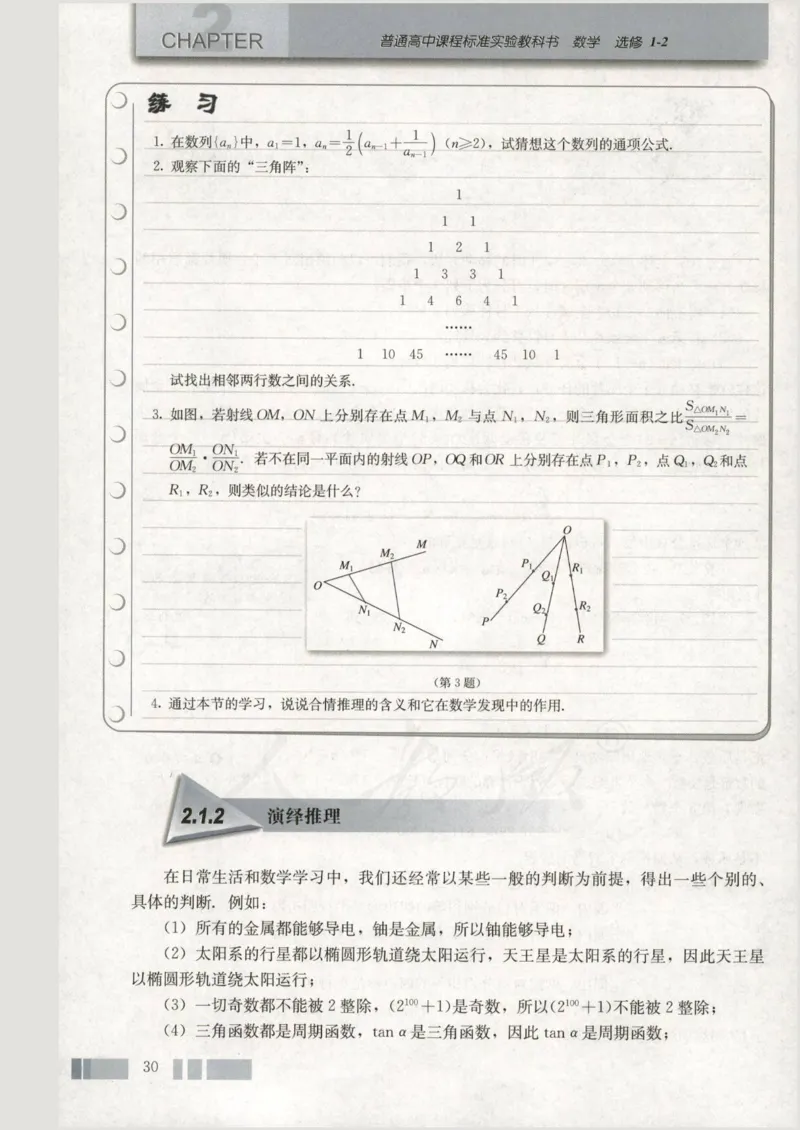 2
CHAPTER
普通高中课程标准实验教科书 数学 选修 1-2
练 习
1. 在数列{aₙ}中，a₁=1，aₙ=1/2(aₙ₋₁+1/aₙ₋₁)（n≥2），试猜想这个数列的通项公式.
2. 观察下面的“三角阵”：
1
1 1
1 2 1
1 3 3 1
1 4 6 4 1
……
1 10 45 …… 45 10 1
试找出相邻两行数之间的关系.
3. 如图，若射线OM，ON 上分别存在点M₁，M₂ 与点 N₁，N₂，则三角形面积之比 S△OM₁N₁/S△OM₂N₂ =
OM₁/OM₂ · ON₁/ON₂. 若不在同一平面内的射线OP，OQ和OR 上分别存在点P₁，P₂，点Q₁，Q₂和点
R₁，R₂，则类似的结论是什么？
O M₁ M₂ M N₁ N₂ N
O P₁ Q₁ R₁ P₂ Q₂ R₂ P Q R
（第 3 题）
4. 通过本节的学习，说说合情推理的含义和它在数学发现中的作用.
2.1.2 演绎推理
在日常生活和数学学习中，我们还经常以某些一般的判断为前提，得出一些个别的、
具体的判断. 例如：
（1）所有的金属都能够导电，铀是金属，所以铀能够导电；
（2）太阳系的行星都以椭圆形轨道绕太阳运行，天王星是太阳系的行星，因此天王星
以椭圆形轨道绕太阳运行；
（3）一切奇数都不能被 2 整除，(2¹⁰⁰+1)是奇数，所以(2¹⁰⁰+1)不能被 2 整除；
（4）三角函数都是周期函数，tan α是三角函数，因此 tan α是周期函数；
30